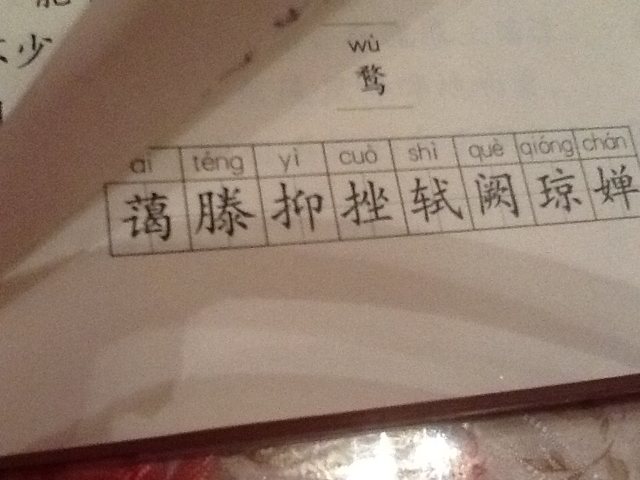 少
wù
骛
ǎi téng yì cuò shì què qióng chán
蔼 滕 抑 挫 轼 阙 琼 婵